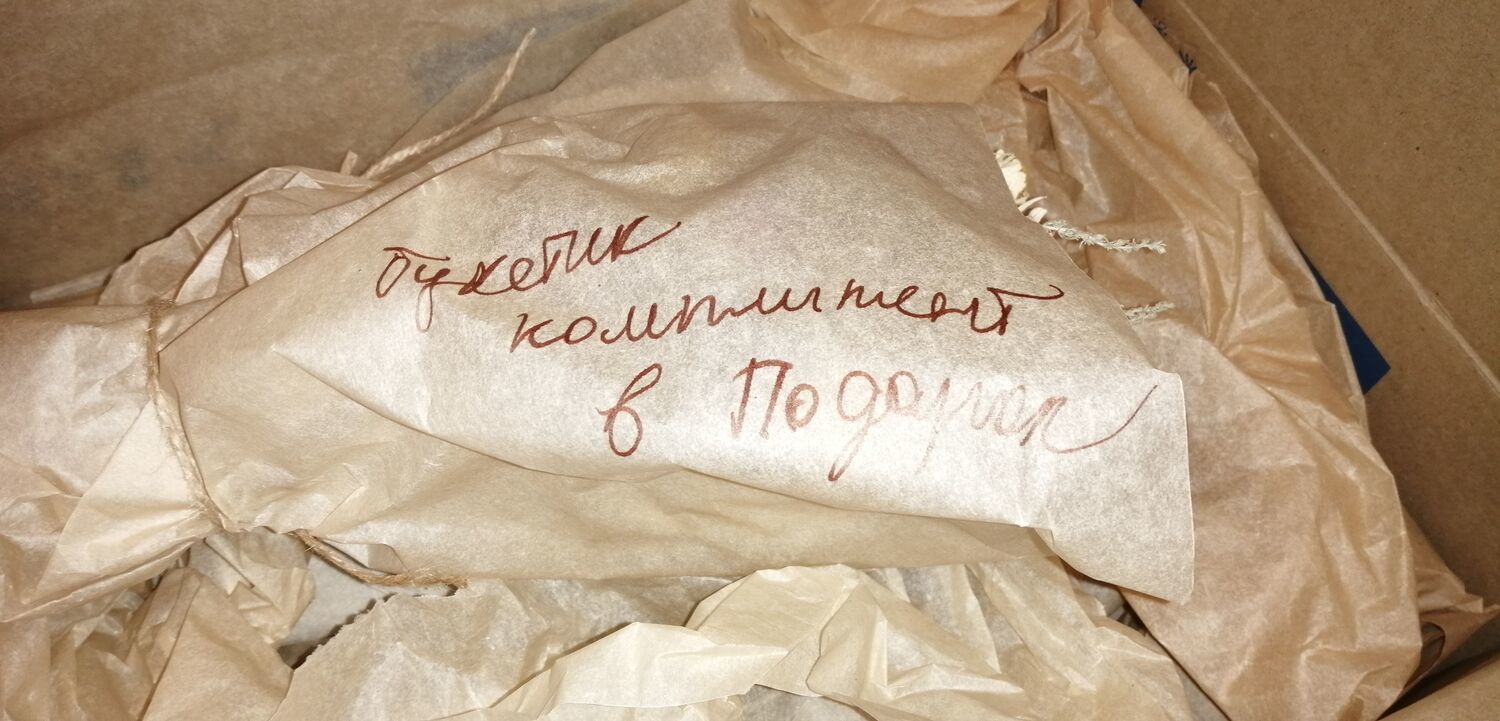 букетик
комплимент
в Подарок